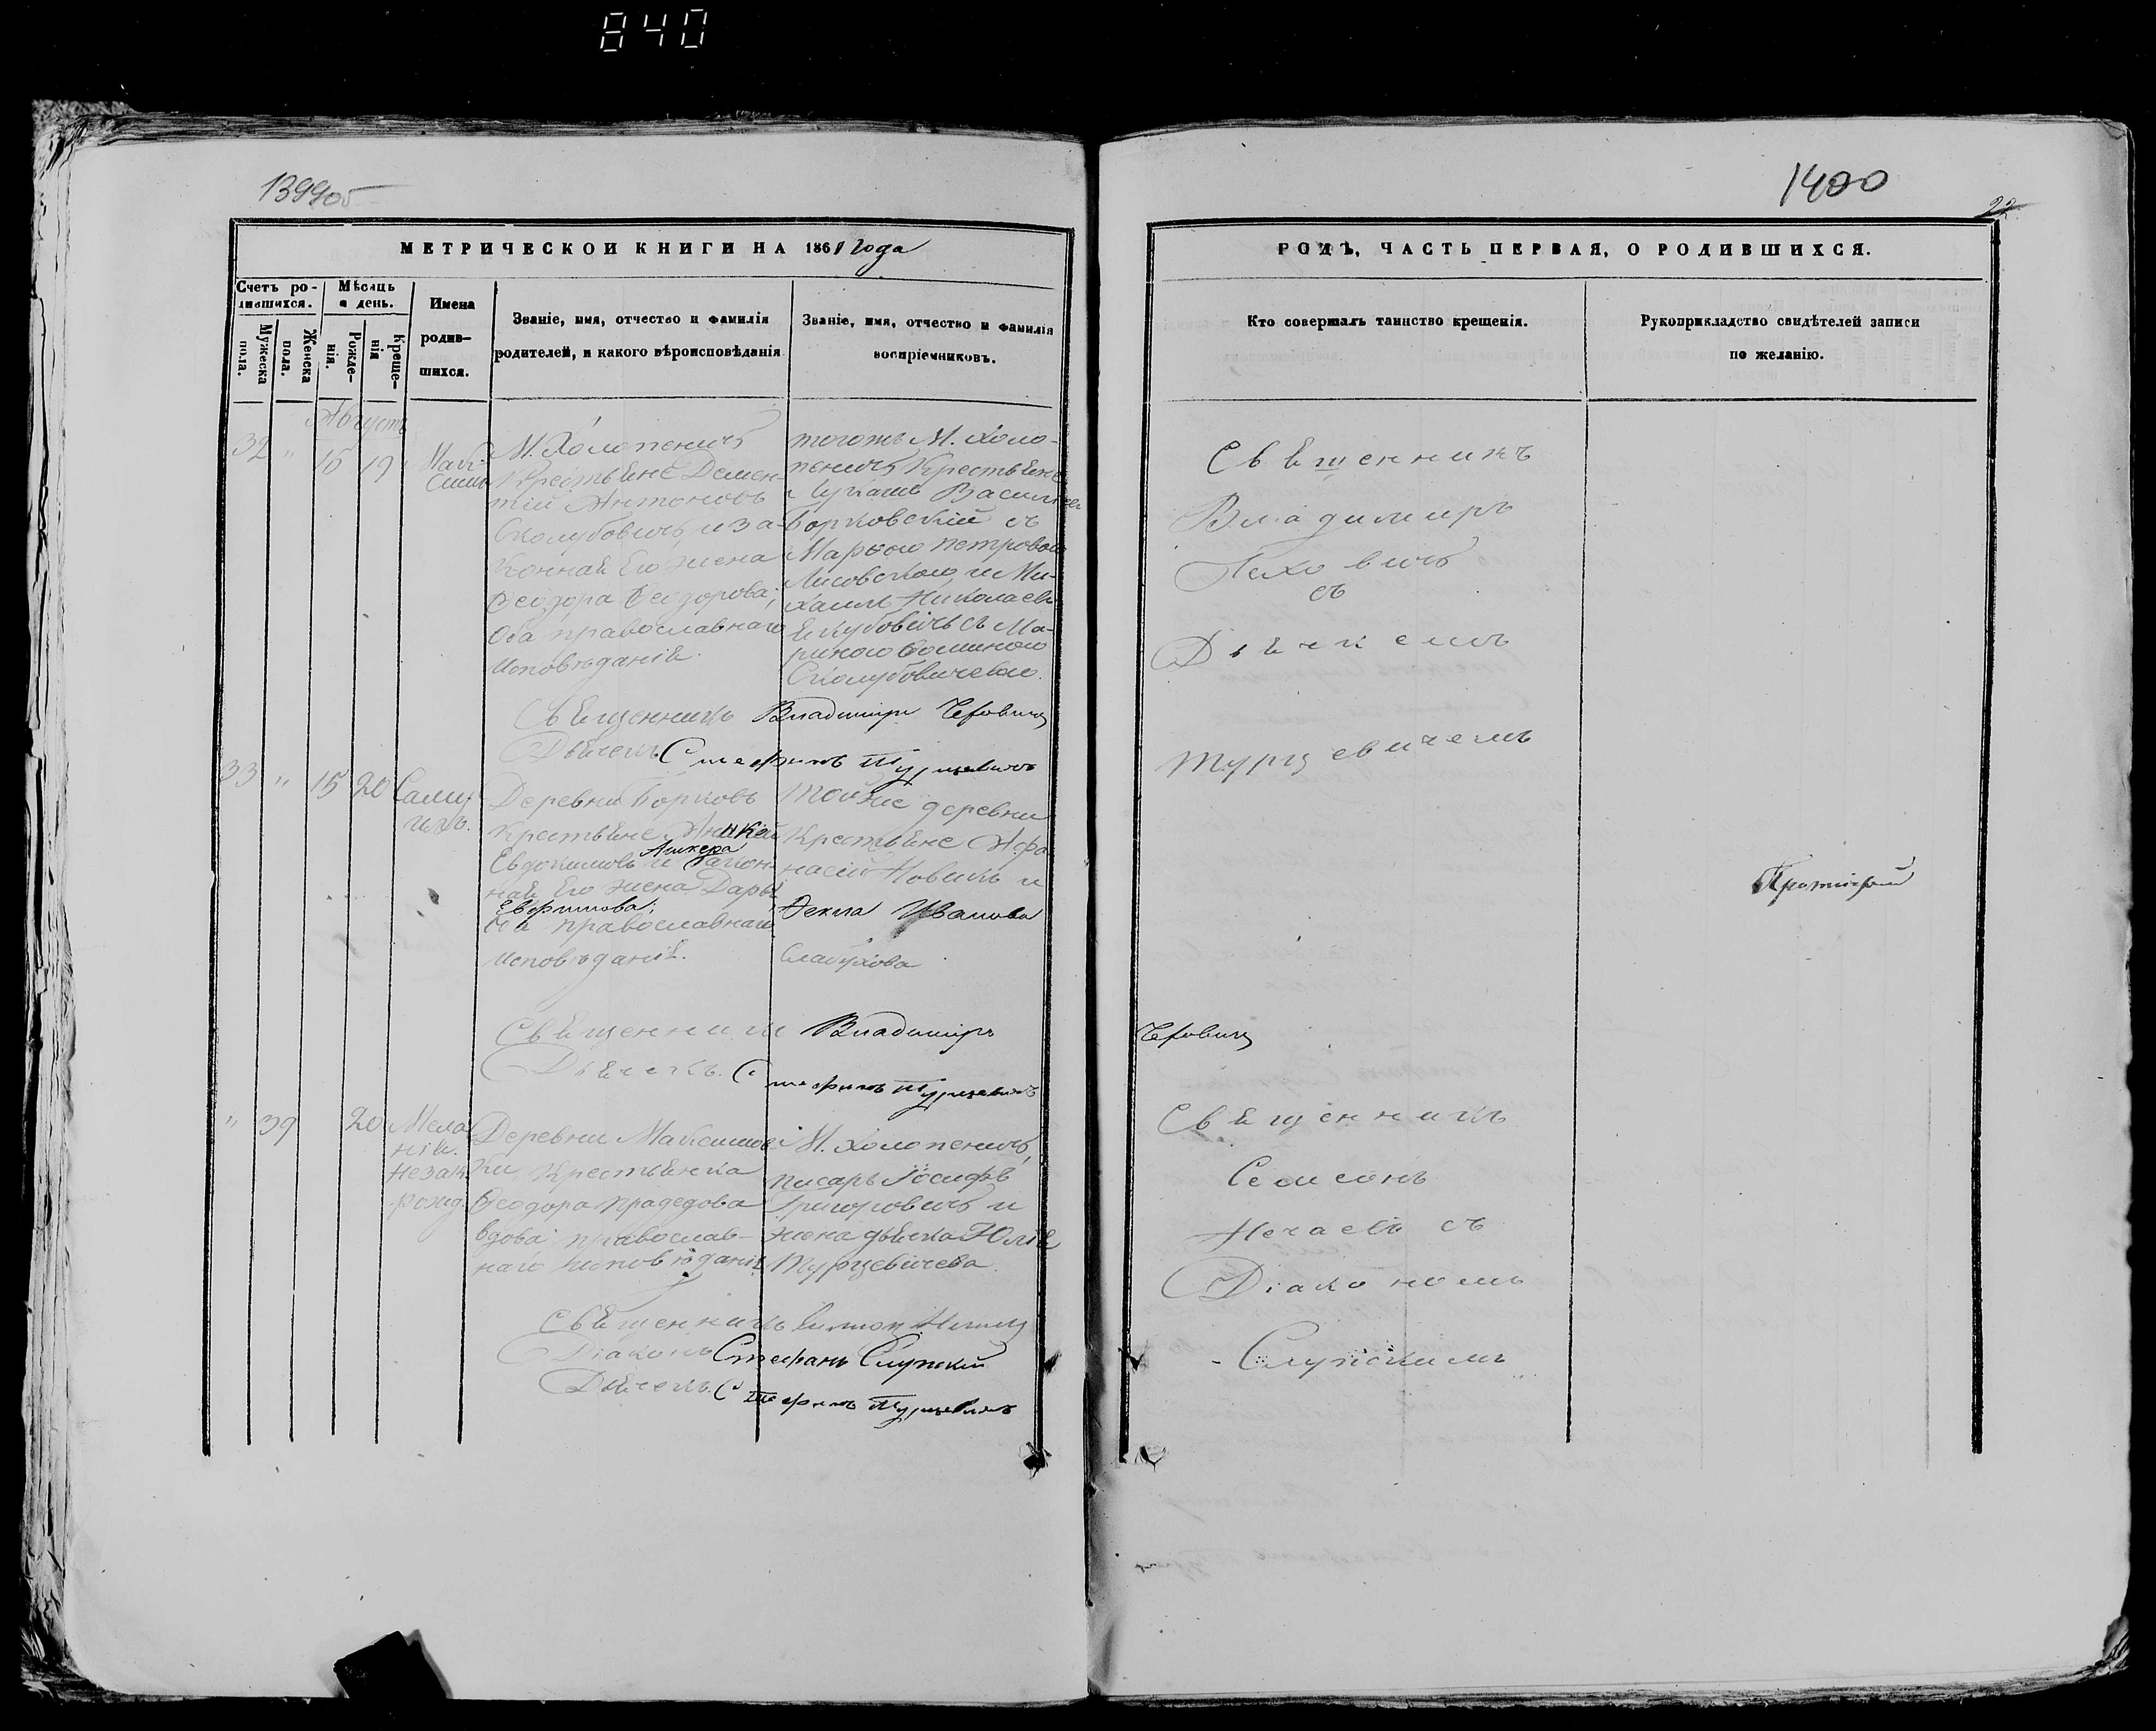 840
1399об
1400
22
МЕТРИЧЕСКОЙ КНИГИ НА 1861 года
Счетъ ро-
дившихся.
Мѣсяцъ
и день.
Имена
родив-
шихся.
Званіе, имя, отчество и фамилія
родителей, и какого вѣроисповѣданія
Званіе, имя, отчество и фамилія
воспріемниковъ.
Мужеска
пола.
Женска
пола.
Рожде-
нія.
Креще-
нія
Августъ
32 " 16 19 Мак-
симъ
М. Холопеничъ
Крестьяне Демен-
тій Антоновъ
Сколубовичъ, и за-
конная его жена
Ѳеодора Ѳеодорова;
Оба православнаго
исповѣданія.
тогожъ М. Холо-
пеничъ Крестьяне
Лукашъ Василіев
Борковскій съ
Марьею Петровою
Лисовскою, и Ми-
хаилъ Николаевъ
Якубовичъ съ Ма-
риною Ѳоминою
Сколубовичевою.
Священникъ Владиміръ
Дьячекъ Стефанъ Турцевичъ
33 " 15 20 Саму-
илъ.
Деревни Борковъ
Крестьяне
Евдокимовъ и закон-
ная его жена Дарья
Евфимова;
Оба православнаго
исповѣданія.
Тойже деревни
Крестьяне Афа-
насій Новикъ и
Ѳекла Иванова
Священникъ Владиміръ
Дьячекъ. Стефанъ Турцевичъ
" 39 20 Мела-
нія.
незак.
рожд.
Деревни Максимов-
ки Крестьянка
Ѳеодора Прадедова
вдова православ-
наго исповѣданія
М. Холопеничъ,
писарь Іосифъ
Григоровичъ и
жена дьячка Юлія
Турцевичева.
Священникъ Симеонъ Нечай
Діаконъ Стефанъ Слупскій
Дьячекъ. Стефанъ Турцевичъ
РОДЪ, ЧАСТЬ ПЕРВАЯ, О РОДИВШИХСЯ.
Кто совершалъ таинство крещенія.
Рукоприкладство свидѣтелей записи
по желанію.
Священникъ
Владимиръ
съ
Дьячкемъ
Турцевичемъ
Священникъ
Семеонъ
Нечаевъ съ
Діакономъ
Слупскимъ